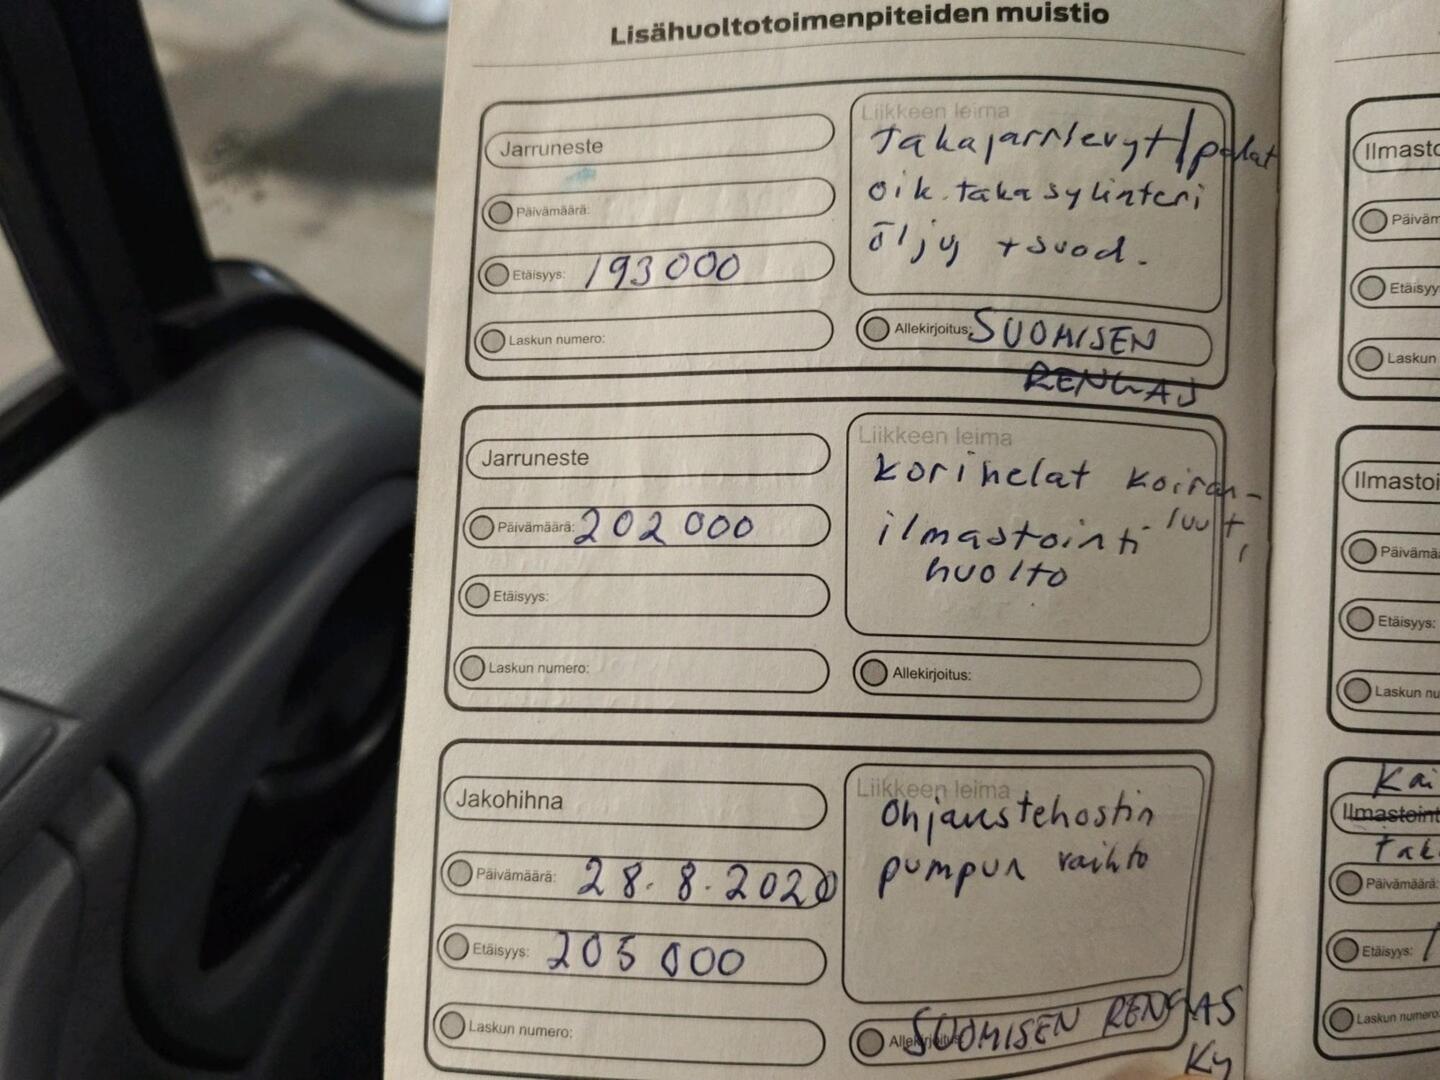 Lisähuoltotoimenpiteiden muistio
Jarruneste
Päivämäärä:
Etäisyys: 193 000
Laskun numero:
Liikkeen leima
Takajarrlevyt/palat
oik. takasylinteri
öljy + suod.
Allekirjoitus: SUOMISEN
RENGAS
Jarruneste
Päivämäärä: 202 000
Etäisyys:
Laskun numero:
Liikkeen leima
Korihelat koiran-
luut,
ilmastointi
huolto
Allekirjoitus:
Jakohihna
Päivämäärä: 28.8.2020
Etäisyys: 205 000
Laskun numero:
Liikkeen leima
Ohjaustehostin
pumpun vaihto
Allekirjoitus: SUOMISEN RENGAS
Ky
Ilmasto
Päiväm
Etäisyy
Laskun
Ilmastoi
Päivämä
Etäisyys:
Laskun nu
Kai
Ilmastoint
tak
Päivämäärä:
Etäisyys: 1
Laskun numero: